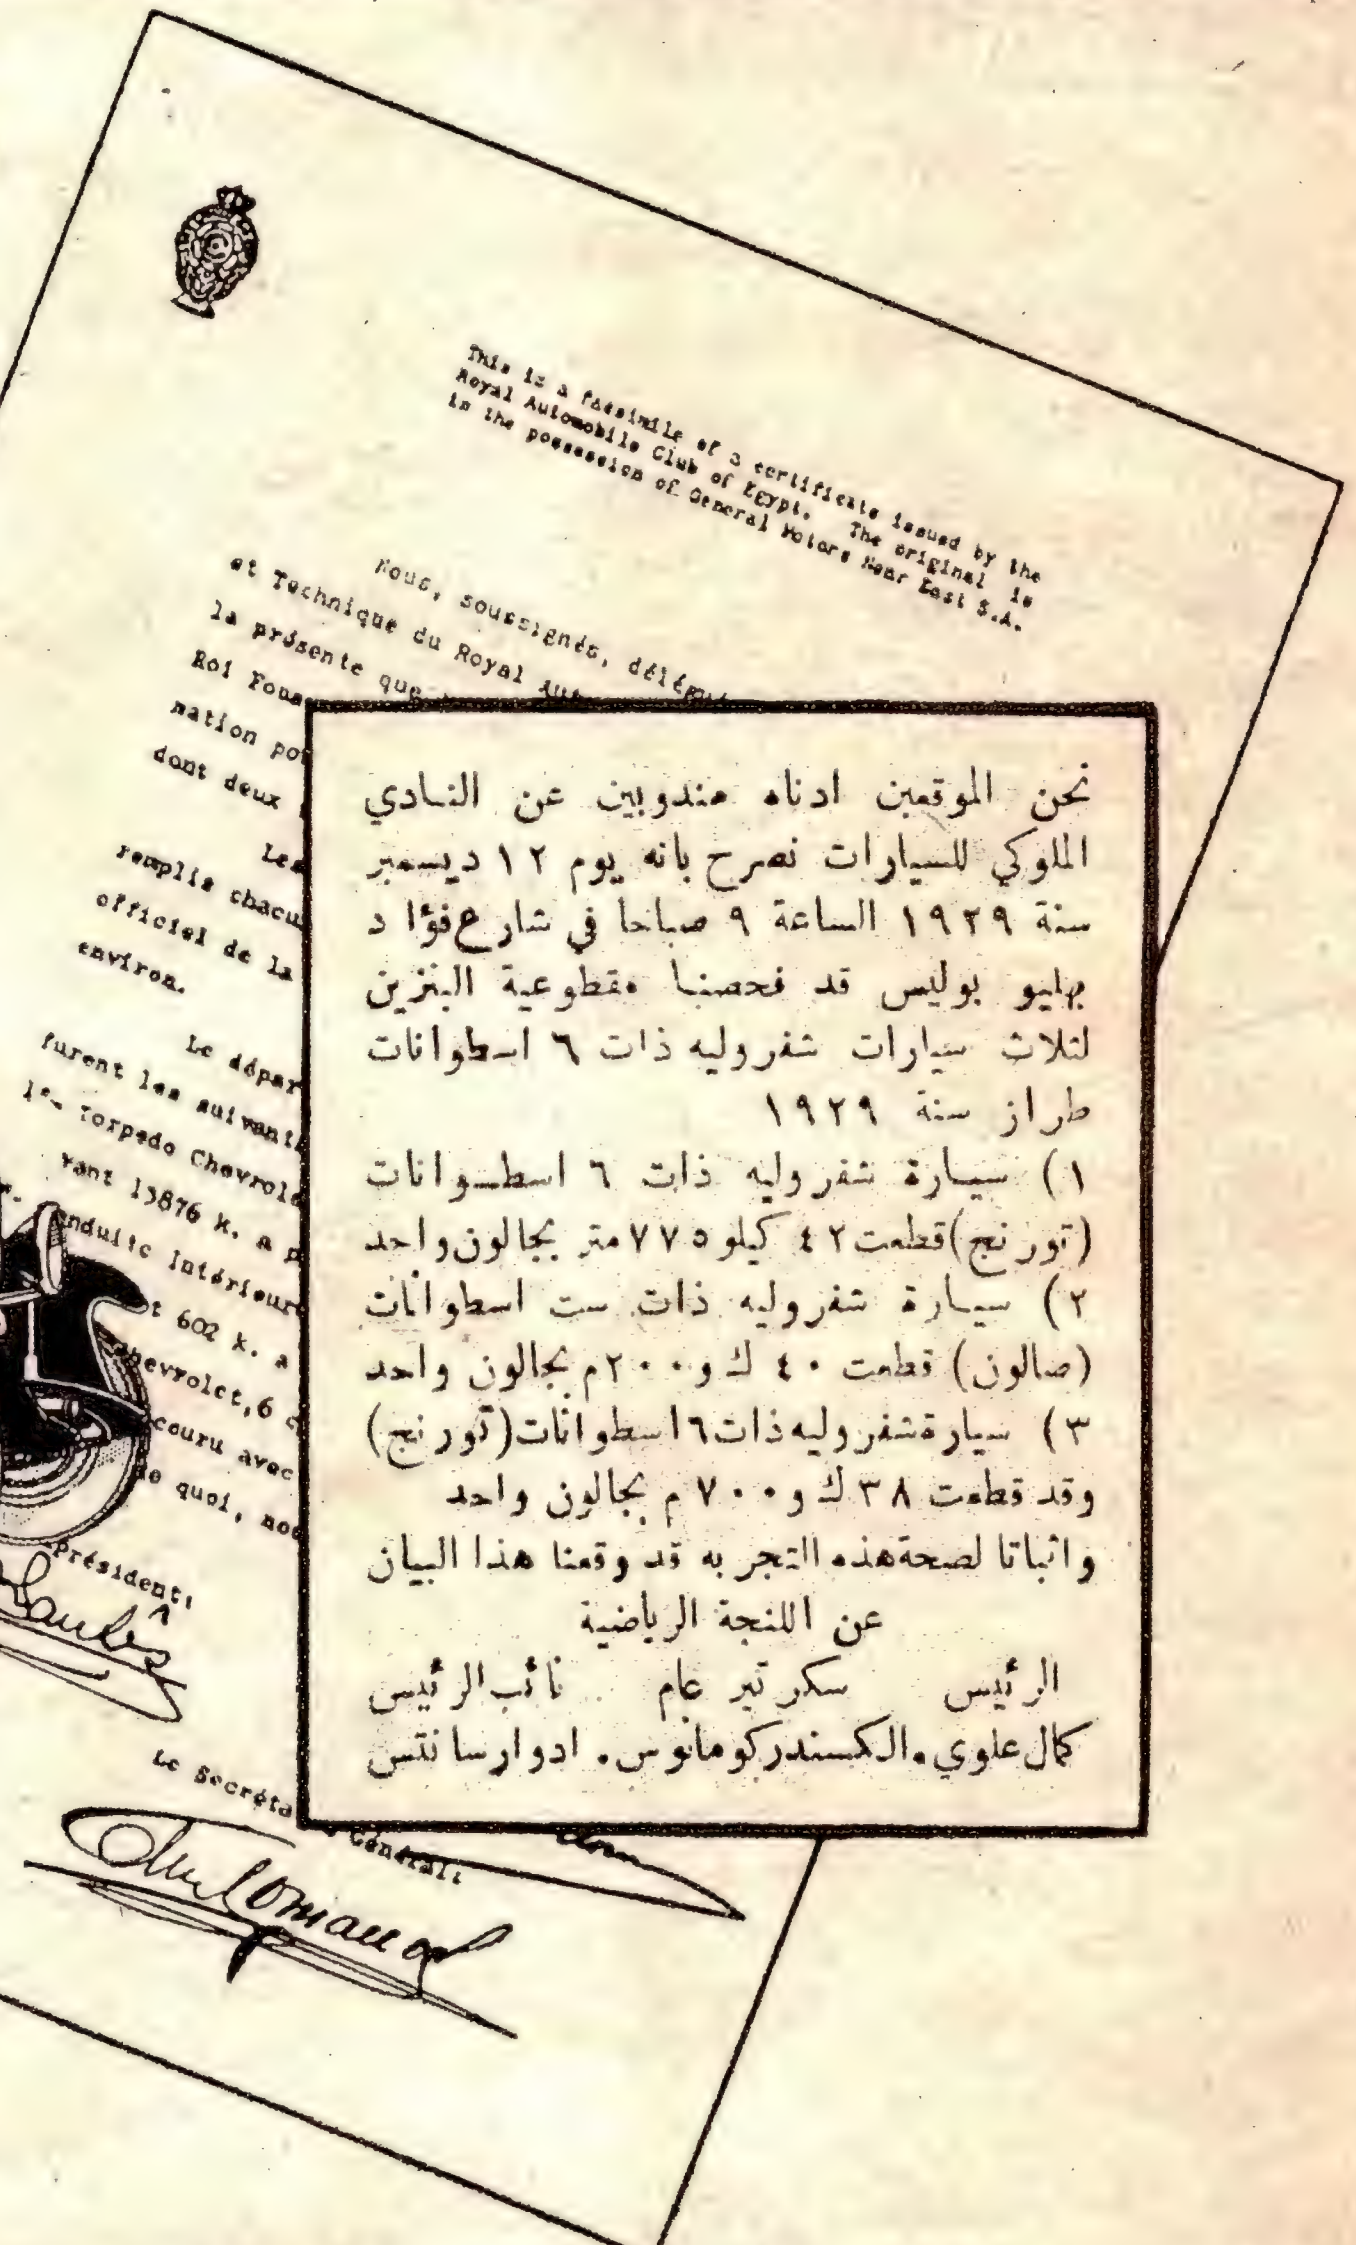 This is a facsimile of a certificate issued by the
Royal Automobile Club of Egypt. The original is
in the possession of General Motors Near East S.A.
Nous, soussignés,
et Technique du Royal
la présente que
Roi
dont deux
Les
remplis
officiel de la
environ.
Le
furent les
Torpedo
13876 k. a
602 k. a
avec
de quoi,
Président:
Le
Général:
نحن الموقعين ادناه مندوبين عن النادي
الملوكي للسيارات نصرح بانه يوم ١٢ ديسمبر
سنة ١٩٢٩ الساعة ٩ صباحا في شارع فؤاد
بهليو بوليس قد فحصنا مقطوعية البنزين
لثلاث سيارات شفروليه ذات ٦ اسطوانات
طراز سنة ١٩٢٩
١) سيارة شفروليه ذات ٦ اسطوانات
(تورنج) قطعت ٤٢ كيلو ٧٧٥ متر بجالون واحد
٢) سيارة شفروليه ذات ست اسطوانات
(صالون) قطعت ٤٠ ك و ٢٠٠ م بجالون واحد
٣) سيارة شفروليه ذات ٦ اسطوانات (تورنج)
وقد قطعت ٣٨ ك و ٧٠٠ م بجالون واحد
واثباتا لصحة هذه التجربه قد وقعنا هذا البيان
عن اللنجة الرياضية
الرئيس سكرتير عام نائب الرئيس
كمال علوي. الكسندر كومانوس. ادوار سانتس